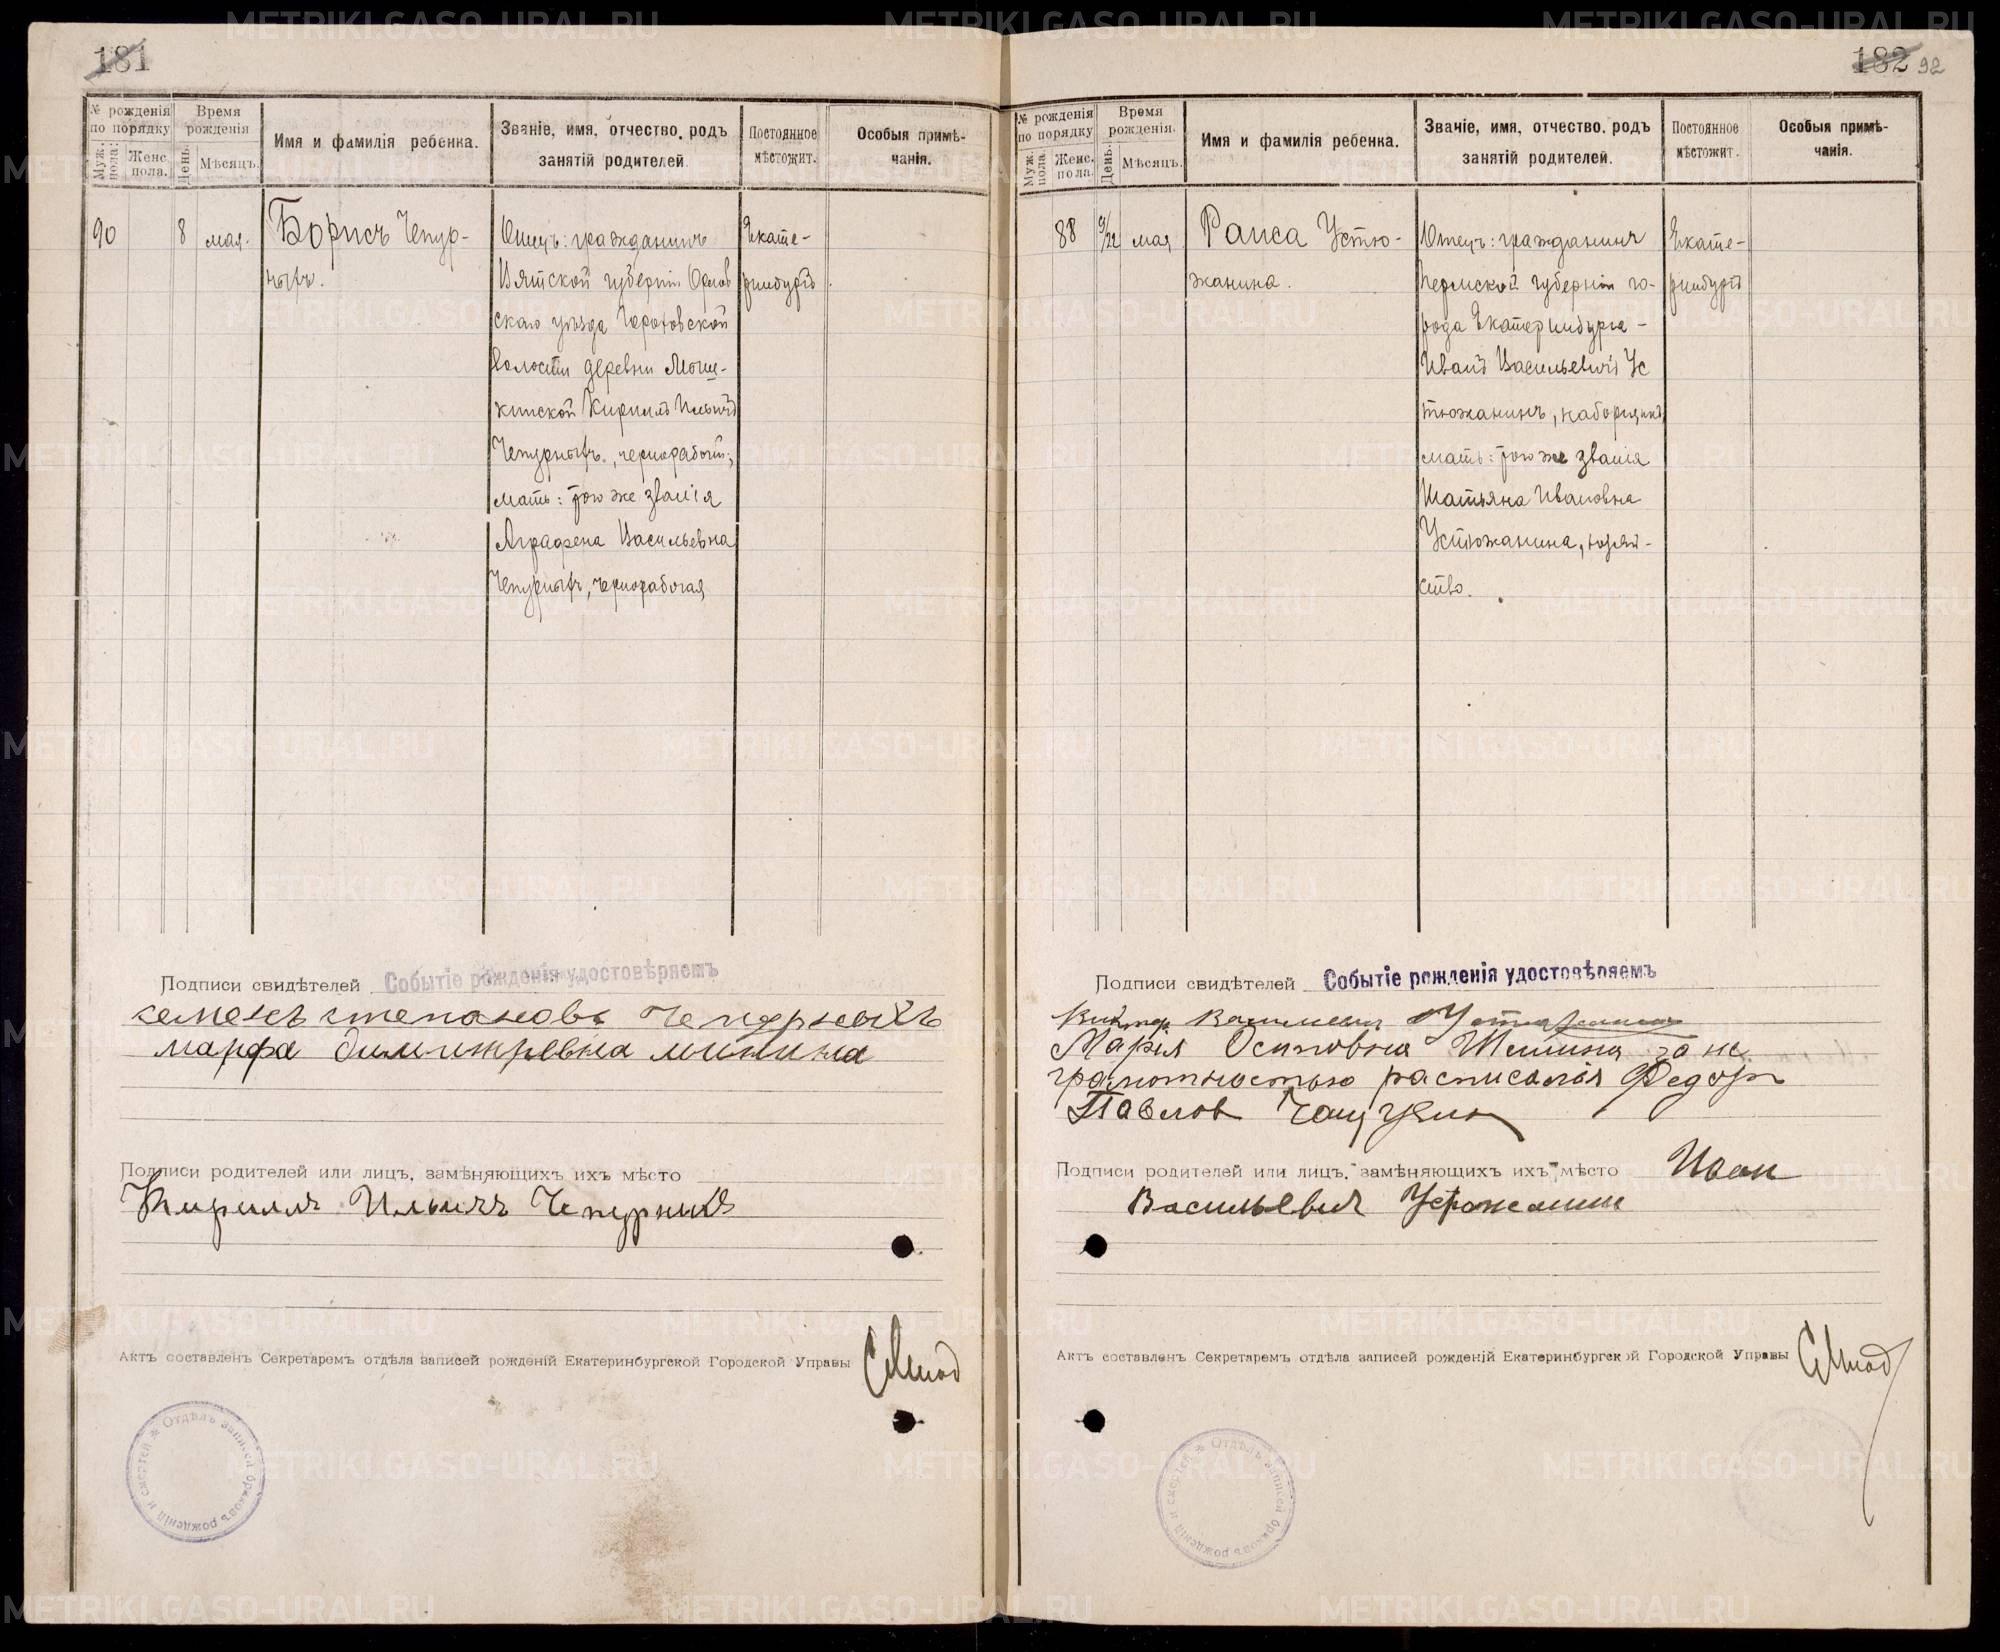 181
№ рожденія по порядку
Муж. пола.
Женс. пола.
Время рожденія
День.
Мѣсяцъ.
Имя и фамилія ребенка.
Званіе, имя, отчество, родъ занятій родителей.
Постоянное мѣстожит.
Особыя примѣчанія.
90
8
мая.
Борисъ Чепур-
ныхъ.
Отецъ: гражданинъ
Вятской губерніи Орлов
скаго уѣзда
волости деревни
Кириллъ Ильичъ
Чепурныхъ, чернорабоч.;
мать: того же званія
Аграфена Васильевна
Чепурныхъ, чернорабочая
Екате-
ринбургъ
Подписи свидѣтелей
Событіе рожденія удостовѣряемъ
семенъ степановъ Чепурныхъ
марфа димитревна минина
Подписи родителей или лицъ, замѣняющихъ ихъ мѣсто
Кириллъ Ильичъ Чепурныхъ
Актъ составленъ Секретаремъ отдѣла записей рожденій Екатеринбургской Городской Управы
Отдѣлъ записей браковъ рожденій и смертей
182 92
№ рожденія по порядку
Муж. пола.
Женс. пола.
Время рожденія.
День.
Мѣсяцъ.
Имя и фамилія ребенка.
Званіе, имя, отчество, родъ занятій родителей.
Постоянное мѣстожит.
Особыя примѣчанія.
88
9/22
мая
Раиса Устю-
жанина.
Отецъ: гражданинъ
Пермской губерніи го-
рода Екатеринбурга -
Иванъ Васильевичъ Ус
тюжанинъ, наборщикъ
мать: того же званія
Татьяна Ивановна
Устюжанина, хозяй-
ство.
Екате-
ринбургъ
Подписи свидѣтелей
Событіе рожденія удостовѣряемъ
Виктор Васильевич Устюжанин
Марія Осиповна за не
грамотностью расписался Федоръ
Павлов
Подписи родителей или лицъ, замѣняющихъ ихъ мѣсто Иван
Васильевич Устюжанин
Актъ составленъ Секретаремъ отдѣла записей рожденій Екатеринбургской Городской Управы
Отдѣлъ записей браковъ рожденій и смертей
METRIKI.GASO-URAL.RU